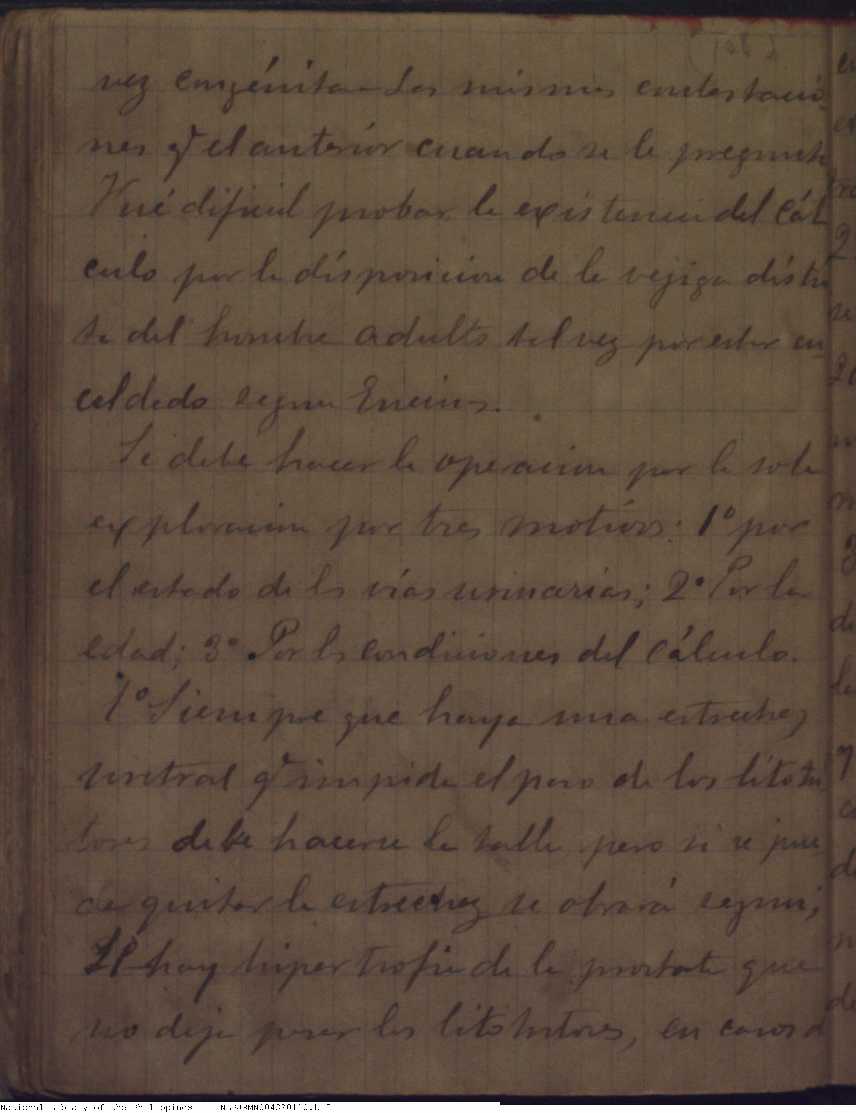 vez congénita — Las mismas contestacio-
nes q̃ el anterior cuando se le pregunta
Fué dificil probar la existencia del Cál-
culo por la disposicion de la vejiga distin-
ta del hombre adulto tal vez por estar en-
celdado segun Encinas.
Se debe hacer la operacion por la sola
exploracion por tres motivos: 1º por
el estado de ls vías urinarias; 2º Por la
edad; 3º Por ls condiciones del cálculo.
1º Siempre que haya una estrechez
uretral q̃ impida el paso de los litotri-
tores debe hacerse la talla pero si se pue-
de quitar la estrechez se obrará segun;
Si hay hipertrofia de la prostata que
no deje pasar los litotritores, en casos d